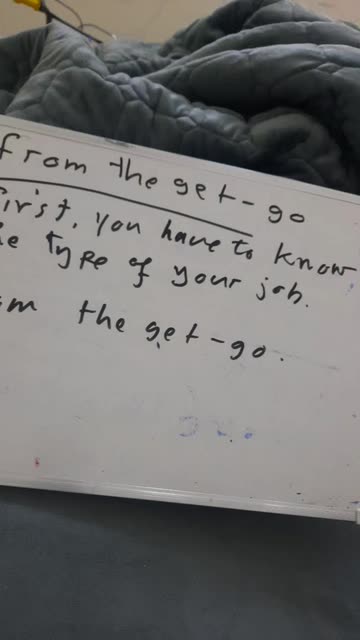 from the get-go
first, you have to know
type of your job.
the get-go.